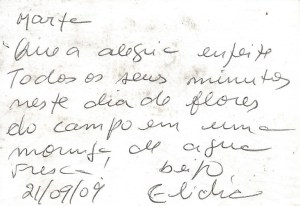 Marta
"Que a alegria enfeite
Todos os seus minutos
neste dia de flores
do campo em uma
moringa de agua
fresca, beijo
21/09/09 Elidia